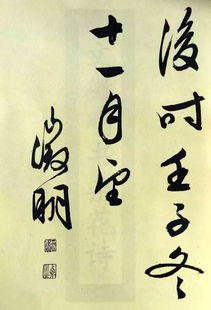 後时壬子冬
十一月望
徵明
花诗